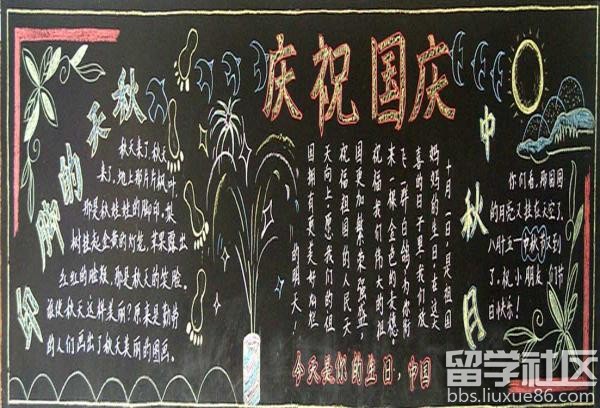 庆祝国庆
秋天的脚印
秋天来了,秋天
来了,地上那片片枫叶
那是秋娃娃的脚印,梨
树挂起金黄的灯笼,苹果露出
红红的脸颊,那是秋天的笑脸。
谁使秋天这样美丽?原来是勤劳
的人们画出了秋天美丽的图画。
十月一日是祖国
妈妈的生日,在这大
喜的日子里,我们放
飞一群白鸽,为你衔
来一颗金色的麦穗。
祝福我们伟大的祖
国更加繁荣强盛,
祝福祖国的人民天
天向上,愿我们的祖
国拥有更美好灿烂
的明天!
今天是你的生日,中国
中秋月
你们看,那圆圆
的月亮又挂在天空了,
八月十五一中秋节又到
了,祝小朋友们节
日快乐!
留学社区
bbs.liuxue86.com